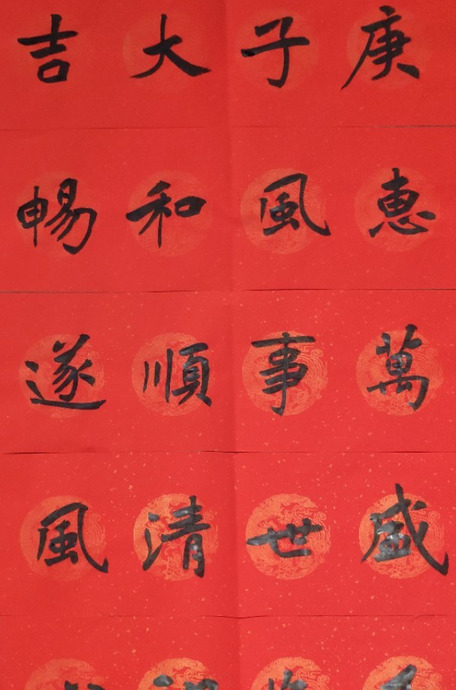 庚子大吉
惠風和暢
萬事順遂
盛世清風